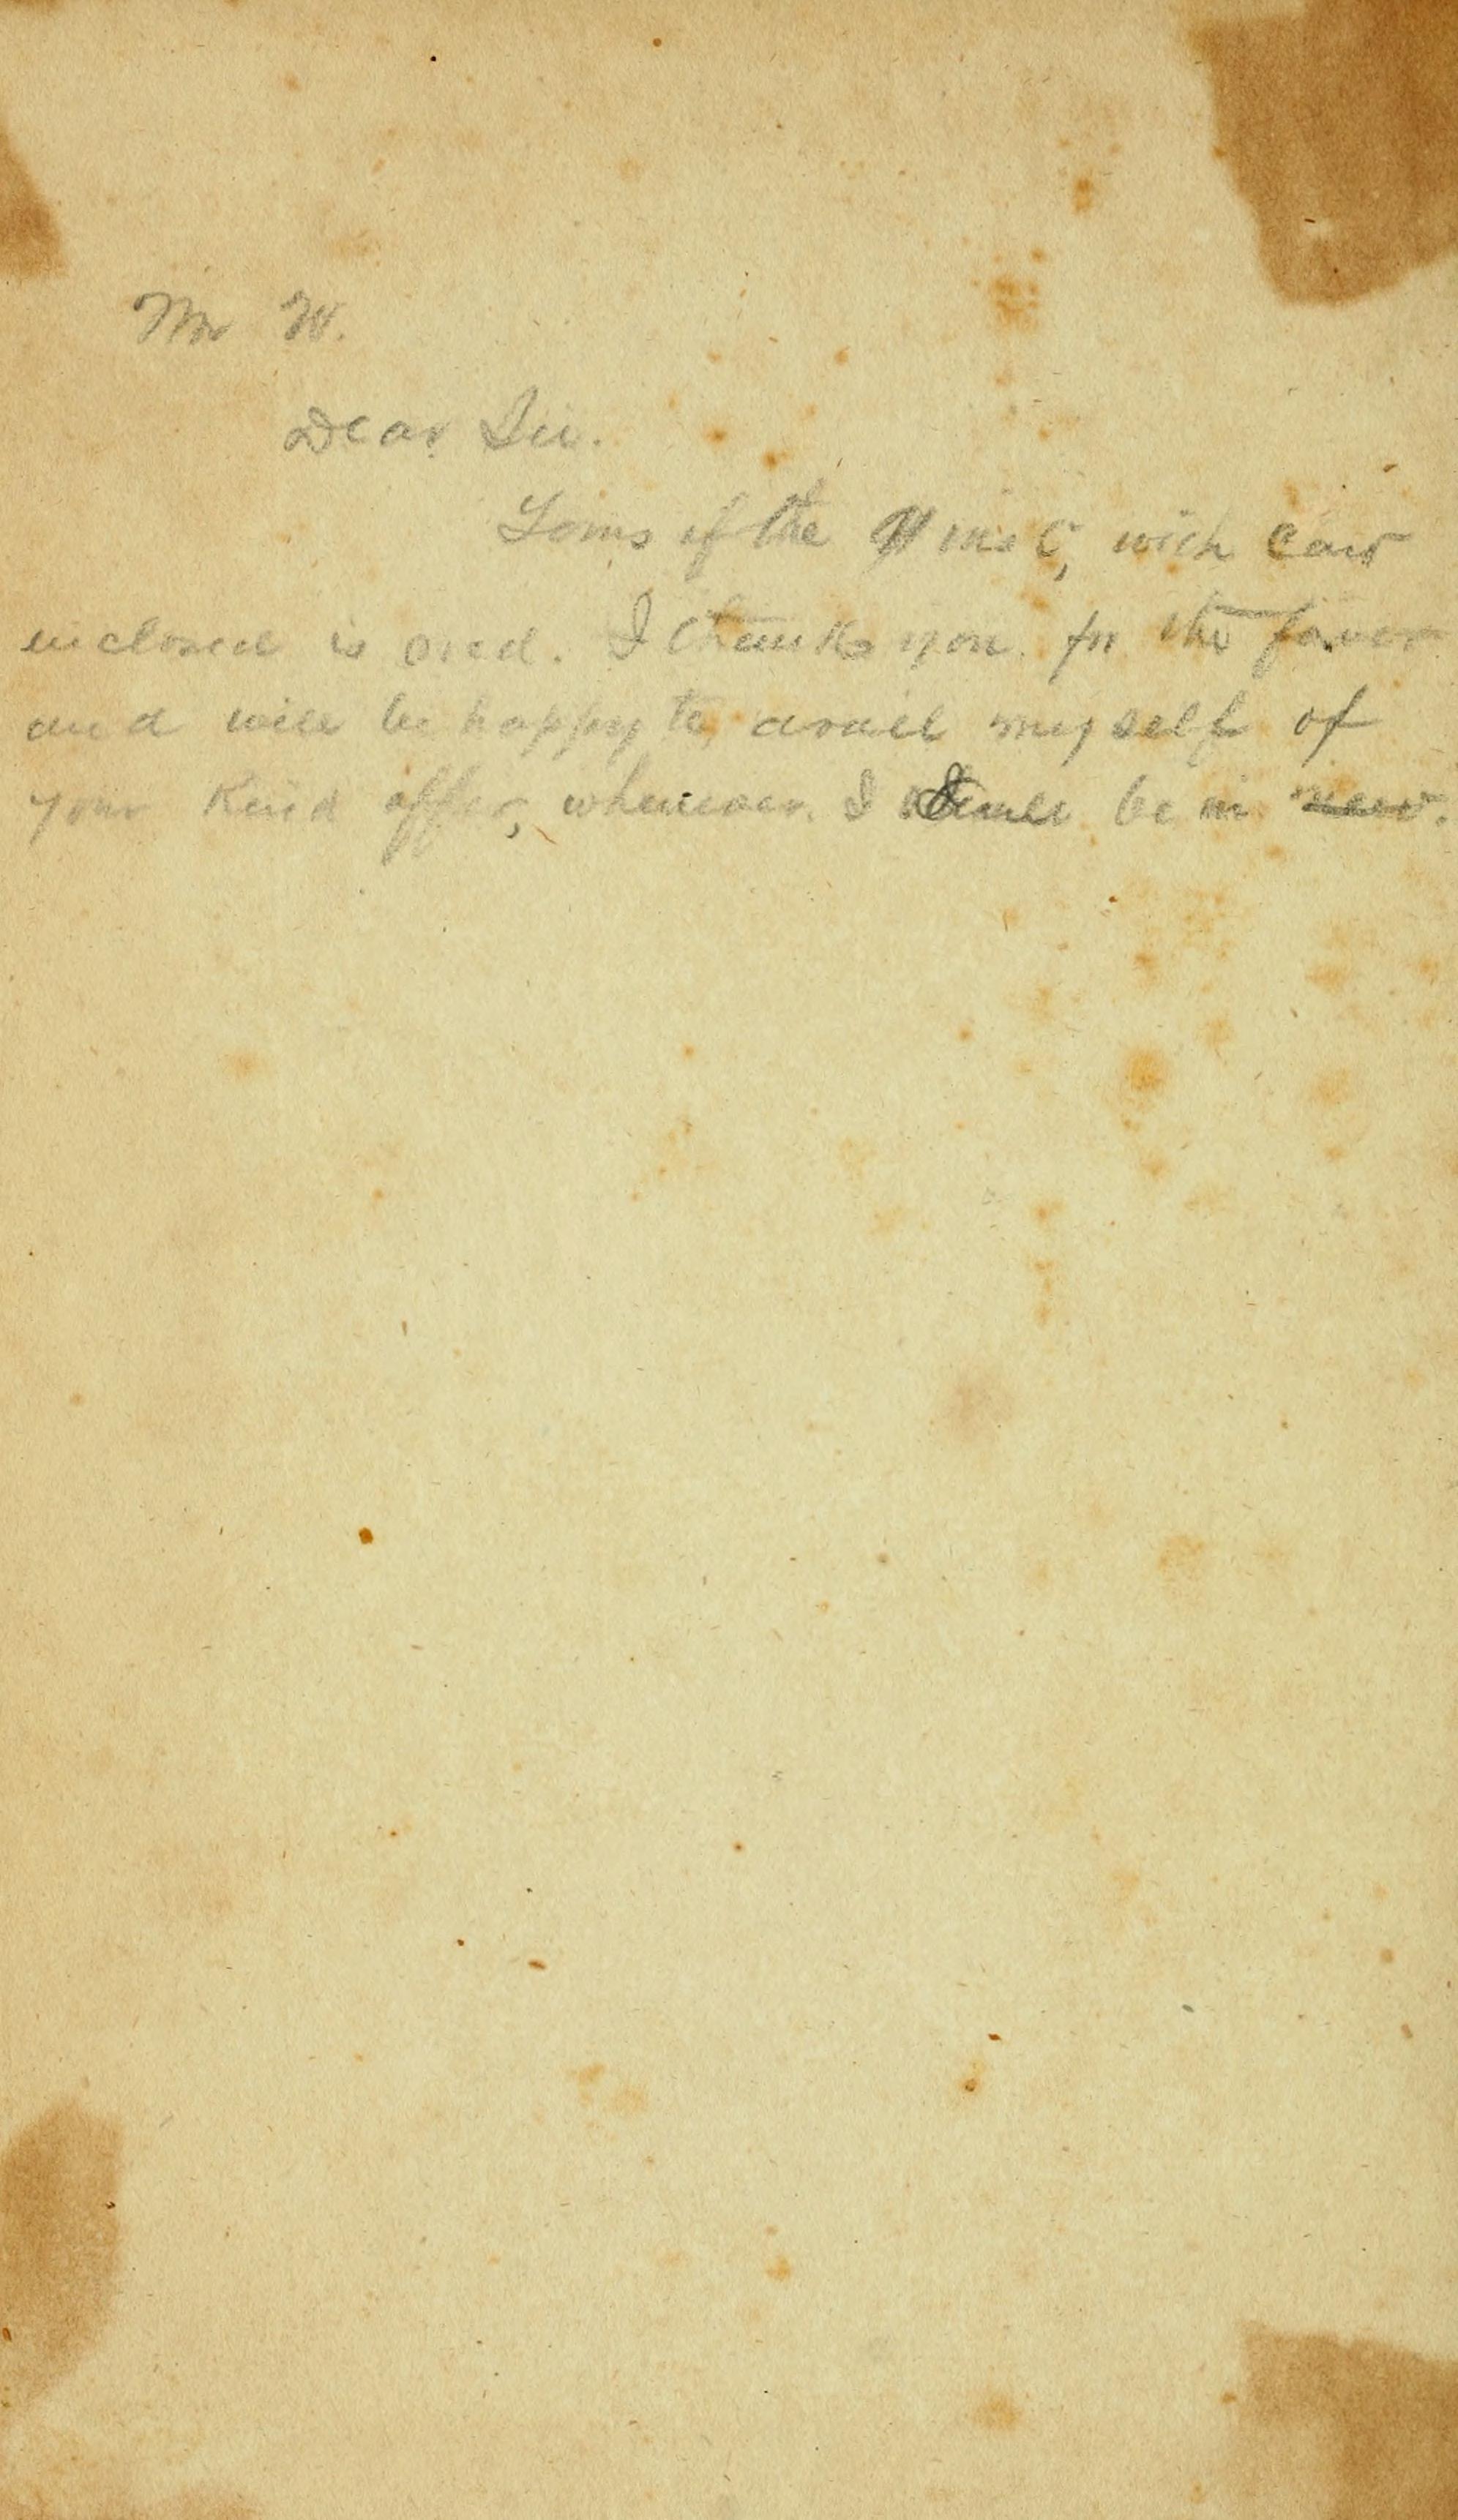 Mr W.
Dear Sir.
Yours of the inst, with card
inclosed is recd. I thank you for the favor
and will be happy to avail myself of
your kind offer, whenever I shall be in